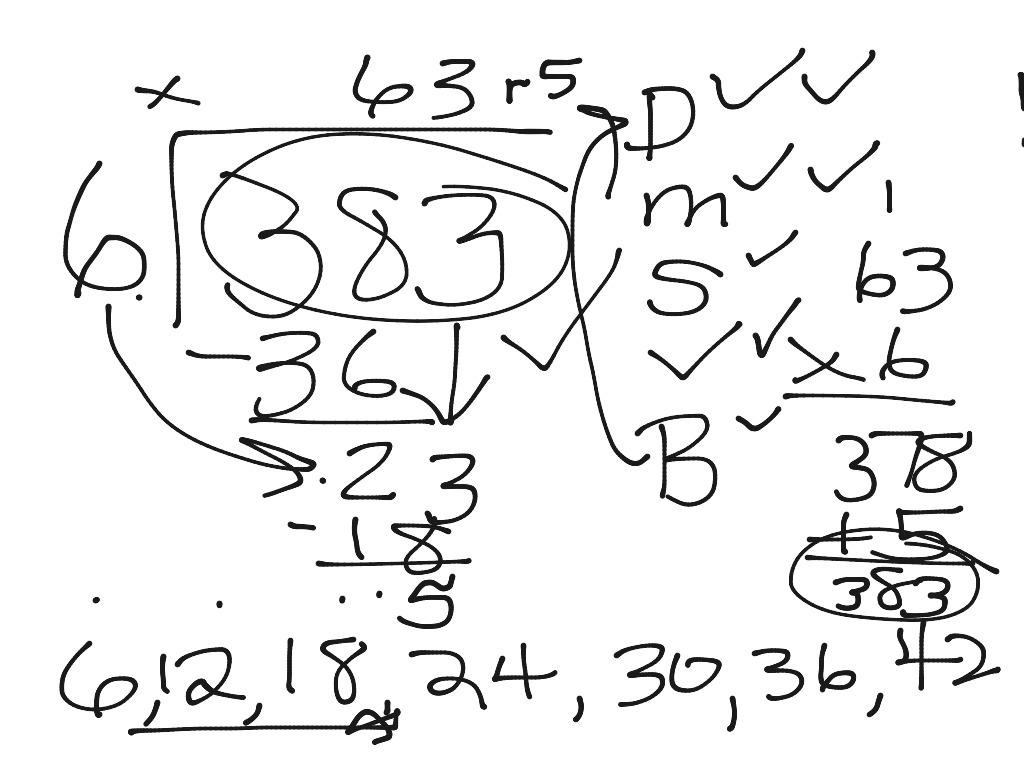 × 63 r5 D ✓ ✓
6 383 m ✓ ✓ 1
S ✓ 63
- 36 ✓ ✓ ✓ × 6
23 B ✓ 378
- 18 + 5
5 383
6, 12, 18, 24, 30, 36, 42